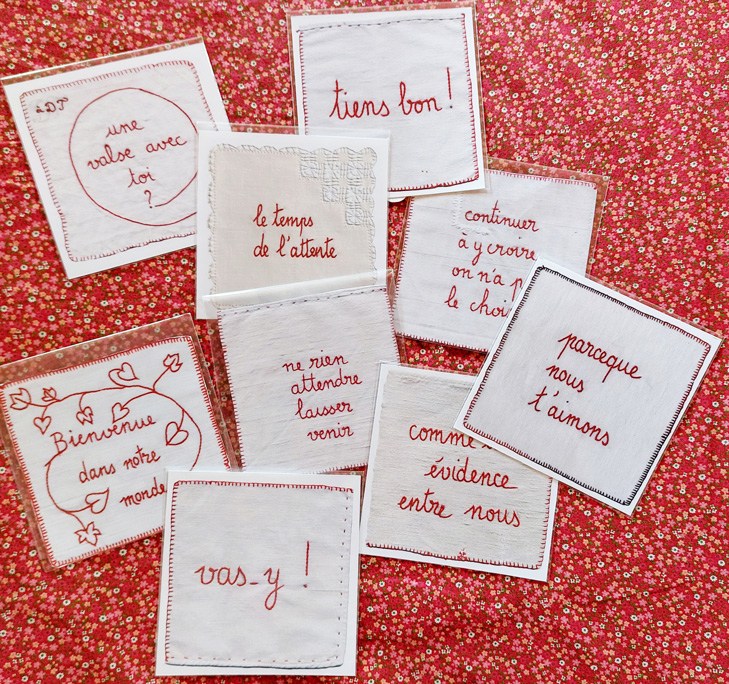 LDT
une
valse avec
toi
?
tiens bon !
le temps
de l'attente
continuer
à y croire
on n'a
le
ne rien
attendre
laisser
venir
parceque
nous
t'aimons
Bienvenue
dans notre
monde
comme
évidence
entre nous
vas-y !